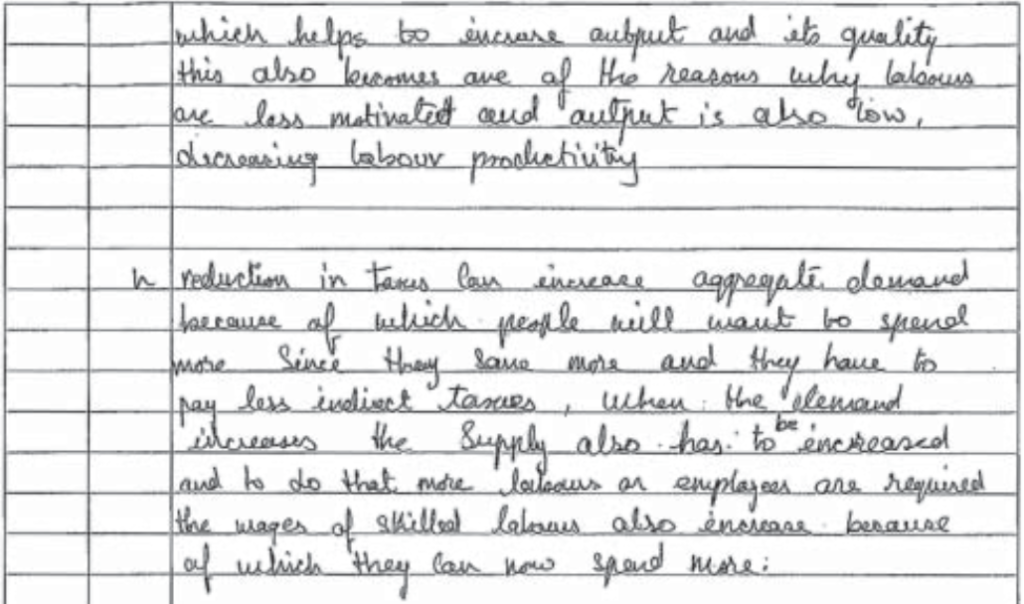 which helps to increase output and its quality
this also becomes one of the reasons why labours
are less motivated and output is also low,
decreasing labour productivity
h reduction in taxes can increase aggregate demand
because of which people will want to spend
more Since they save more and they have to
pay less indirect taxes, when the demand
increases the Supply also has to be increased
and to do that more labours or employees are required
the wages of skilled labours also increase because
of which they can now spend more.